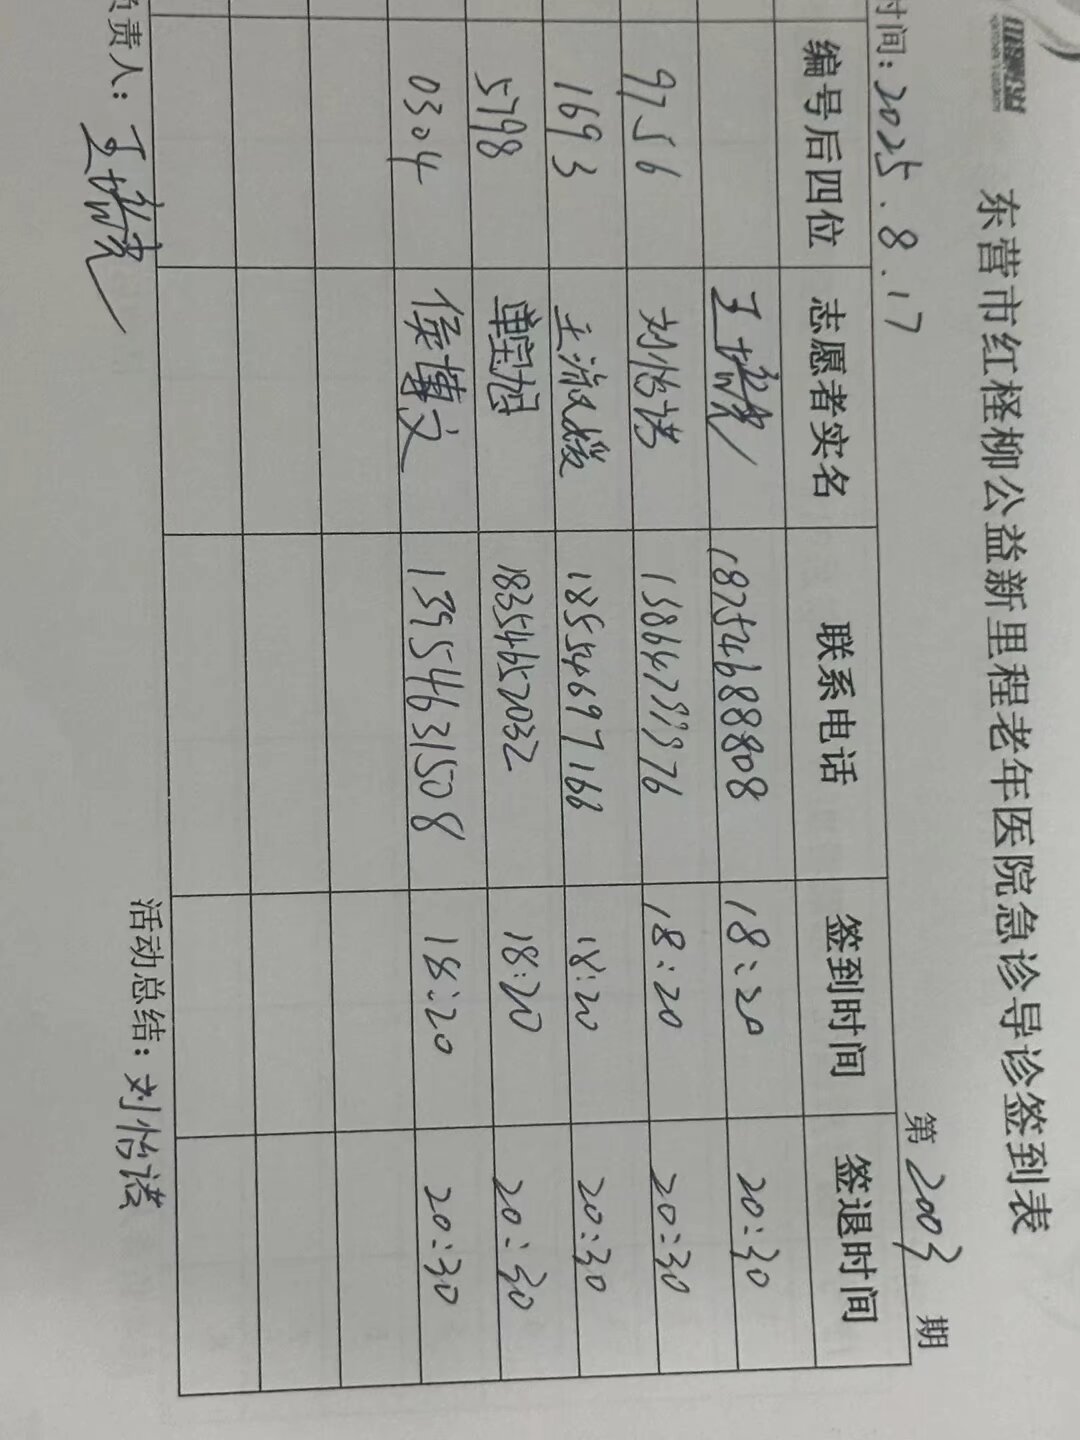 东营市红柽柳公益新里程老年医院急诊导诊签到表
第2003期
时间：2025.8.17
编号后四位 志愿者实名 联系电话 签到时间 签退时间
18754688808 18:20 20:30
9756 刘怡诺 15864739976 18:20 20:30
1693 王淑媛 18554697166 18:20 20:30
5798 单宝旭 18354657032 18:20 20:30
0304 侯博文 13954631508 18:20 20:30
负责人：
活动总结：刘怡诺